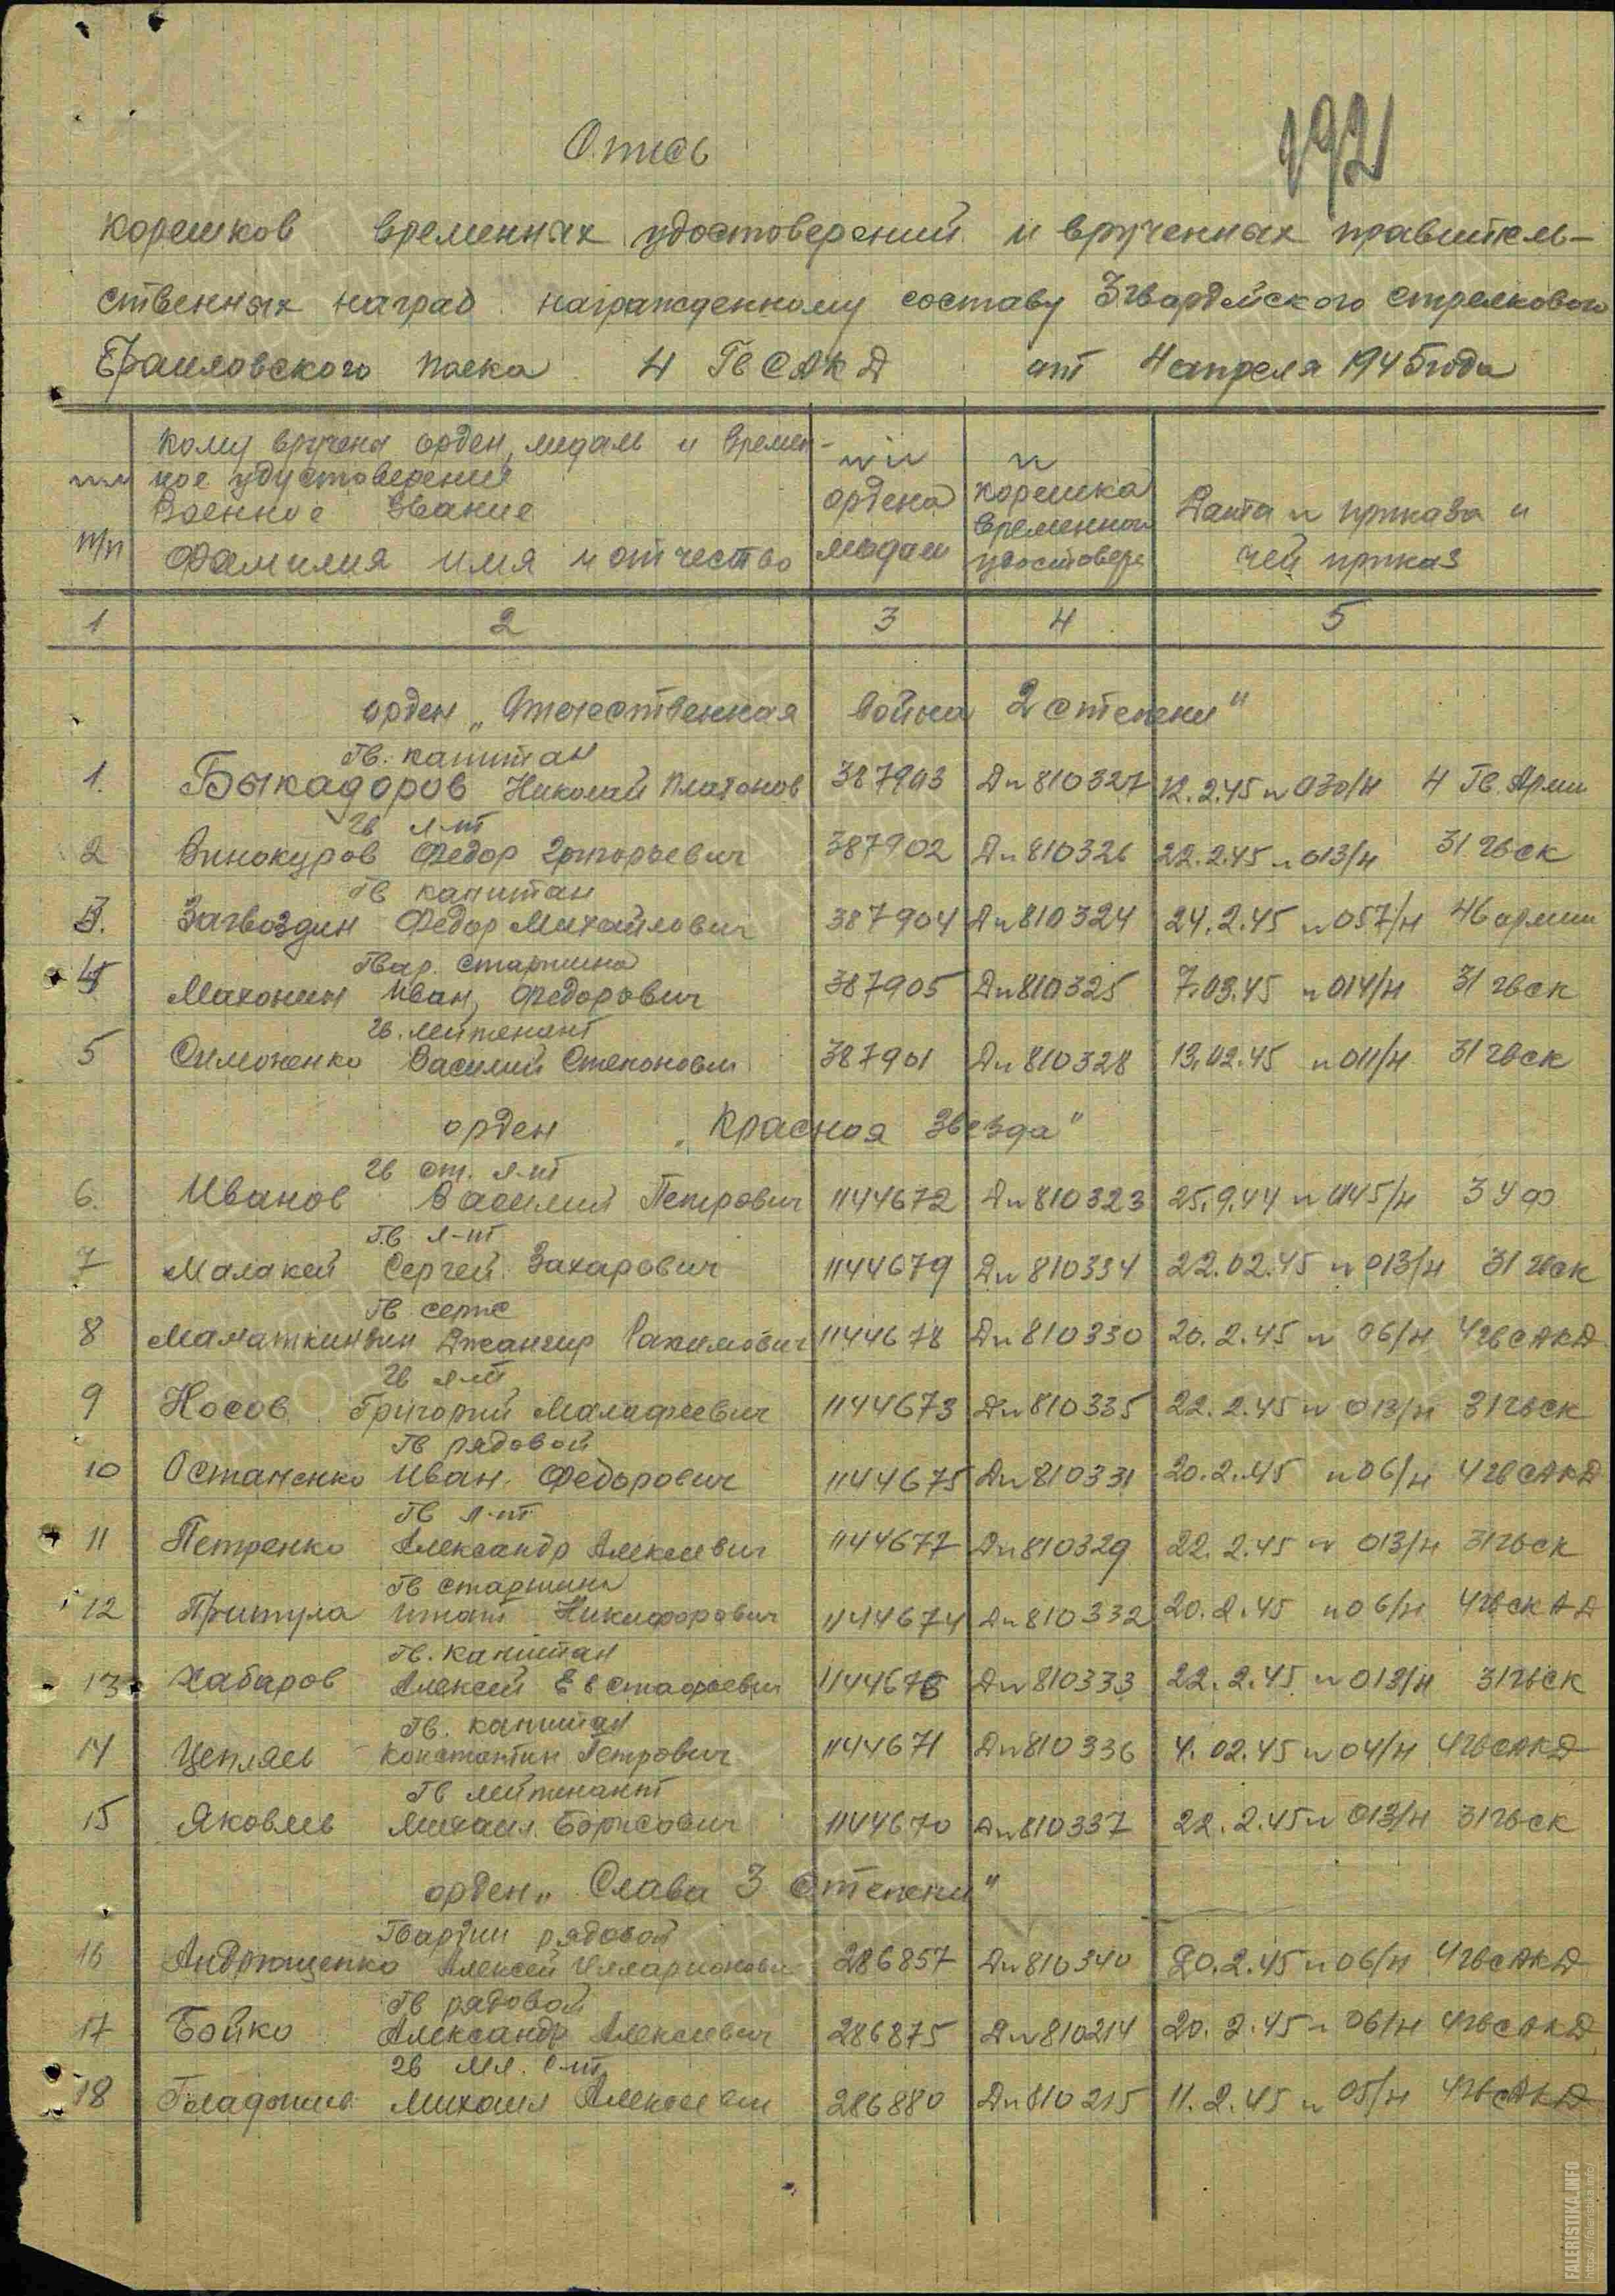 192
Опись
корешков временных удостоверений и врученных правитель-
ственных наград награжденному составу 3 гвардейского стрелкового
Браиловского полка 4 ГвСАКД от 4 апреля 1945 года
кому вручена орден, медаль и времен-
ное удустоверения
Военное Звание
Фамилия имя и отчество
п/п
ордена
медали
№
корешка
временного
удостовере
Дата № приказа и
чей приказ
1 2 3 4 5
орден „Отечественная Война 2 степени"
Гв. капитан
1. Быкадоров Николай Платонов 387903 Д№810327 12.2.45 №030/н 4 Гв. Арми
Гв л-нт
2 Винокуров Федор Григорьевич 387902 Д№810326 22.2.45 №013/н 31 гвск
Гв капитан
3. Загвоздин Федор Михайлович 387904 Д№810324 24.2.45 №057/н 46 армии
Гвар. старшина
4 Махонин Иван Федорович 387905 Д№810325 7.03.45 №014/н 31 гвск
Гв. лейтенант
5 Симоненко Василий Степанович 387901 Д№810328 13.02.45 №011/н 31 гвск
орден „Красная Звезда"
Гв ст. л-нт
6. Иванов Василий Петрович 1144672 Д№810323 25.9.44 №0145/н 3 УФ
Гв л-нт
7 Малакей Сергей Захарович 1144679 Д№810334 22.02.45 №013/н 31 гвск
Гв серж
8 Джангир Рахимович 1144678 Д№810330 20.2.45 №06/н 4гвСАКД
Гв л-нт
9 Носов Григорий Малафеевич 1144673 Д№810335 22.2.45 №013/н 31гвск
Гв рядовой
10 Останенко Иван Федорович 1144675 Д№810331 20.2.45 №06/н 4гвСАКД
Гв л-нт
11 Петренко Александр Алексеевич 1144677 Д№810329 22.2.45 №013/н 31гвск
Гв старшина
12 Притула Игнат Никифорович 1144674 Д№810332 20.2.45 №06/н 4гвСКАД
Гв. капитан
13 Хабаров Алексей Евстафьевич 1144676 Д№810333 22.2.45 №013/н 31гвск
Гв. капитан
14 Цепляев Константин Петрович 1144671 Д№810336 4.02.45 №04/н 4гвСАКД
Гв лейтенант
15 Яковлев Михаил Борисович 1144670 Д№810337 22.2.45 №013/н 31гвск
орден „Слава 3 степени"
Гвардии рядовой
16 Андрющенко Алексей Илларионович 286857 Д№810340 20.2.45 №06/н 4гвСАКД
Гв рядовой
17 Бойко Александр Алексеевич 286875 Д№810214 20.2.45 №06/н 4гвСАКД
Гв мл. с-нт
18 Михаил Алексеевич 286880 Д№810215 11.2.45 №05/н 4гвСАКД
FALERISTIKA.INFO
https://faleristika.info/